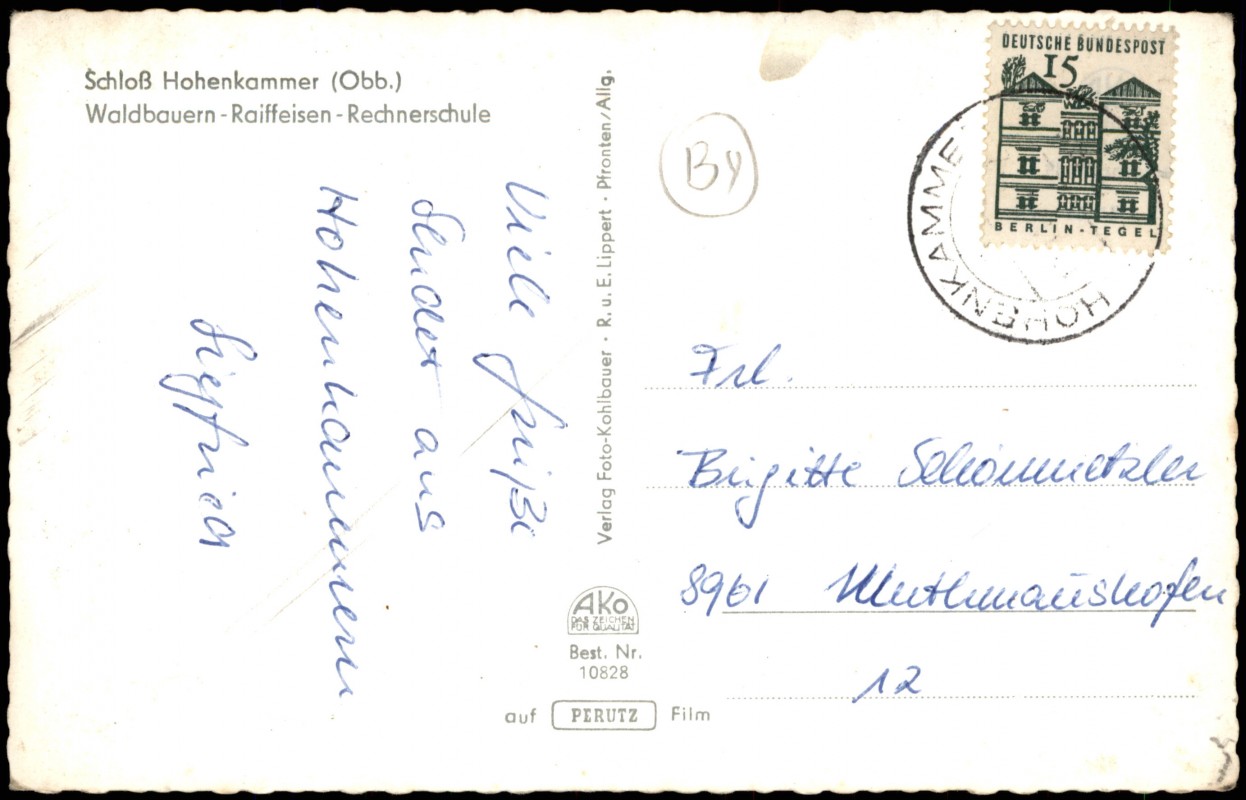 Schloß Hohenkammer (Obb.)
Waldbauern-Raiffeisen-Rechnerschule
Viele Grüße
sendet aus
Hohenkammern
Siegfried
Verlag Foto-Kohlbauer · R. u. E. Lippert · Pfronten/Allg.
AKO
DAS ZEICHEN
FÜR QUALITÄT
Best. Nr.
10828
auf PERUTZ Film
By
DEUTSCHE BUNDESPOST
15
BERLIN-TEGEL
HOHENKAMMER
Frl.
Brigitte Schönmetzler
8961 Muthmannshofen
12